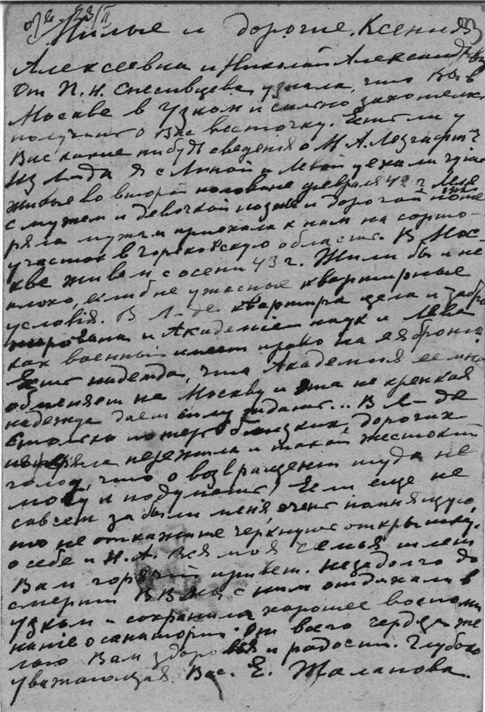 Милые и дорогие, Ксения
Алексеевна и Николай Александрович
От П. Н. Спесивцева узнала, что Вы в
Москве в Узком и сильно захотелось
получить о Вас весточку. Есть ли у
Вас какие нибудь сведения о
Из Л-да Я с Линой и уехали чуть
живые во второй половине февраля 42 г.
с мужем и девочкой позже и дорогой поте
ряла мужа и приехала к нам на сорто-
участок в Горьковскую область. В Мос-
кве живем с осени 43 г. Жили бы и не
плохо, если б не ужасные квартирные
условия. В Л-де квартира цела и заб
и Академией наук и
как военный имеет право на ея бронь
Есть надежда, что Академия ее
обменяет на Москву и эта не крепкая
надежда дает силу ждать... В Л-де
столько потерь близких дорогих
пережила и такой жестокий
голод, что о возвращении туда не
могу и подумать. Если еще не
совсем забыли меня, очень помнящую,
то не откажите черкнуть открытку
о себе и Н. А. Вся моя семья шлет
Вам горячий привет. Незадолго до
смерти В. В. с ним отдыхали в
Узком и сохранила хорошее воспоми
нание о санатории. От всего сердца же
лаю Вам здоровья и радости. Глубоко
уважающая Вас. Е.